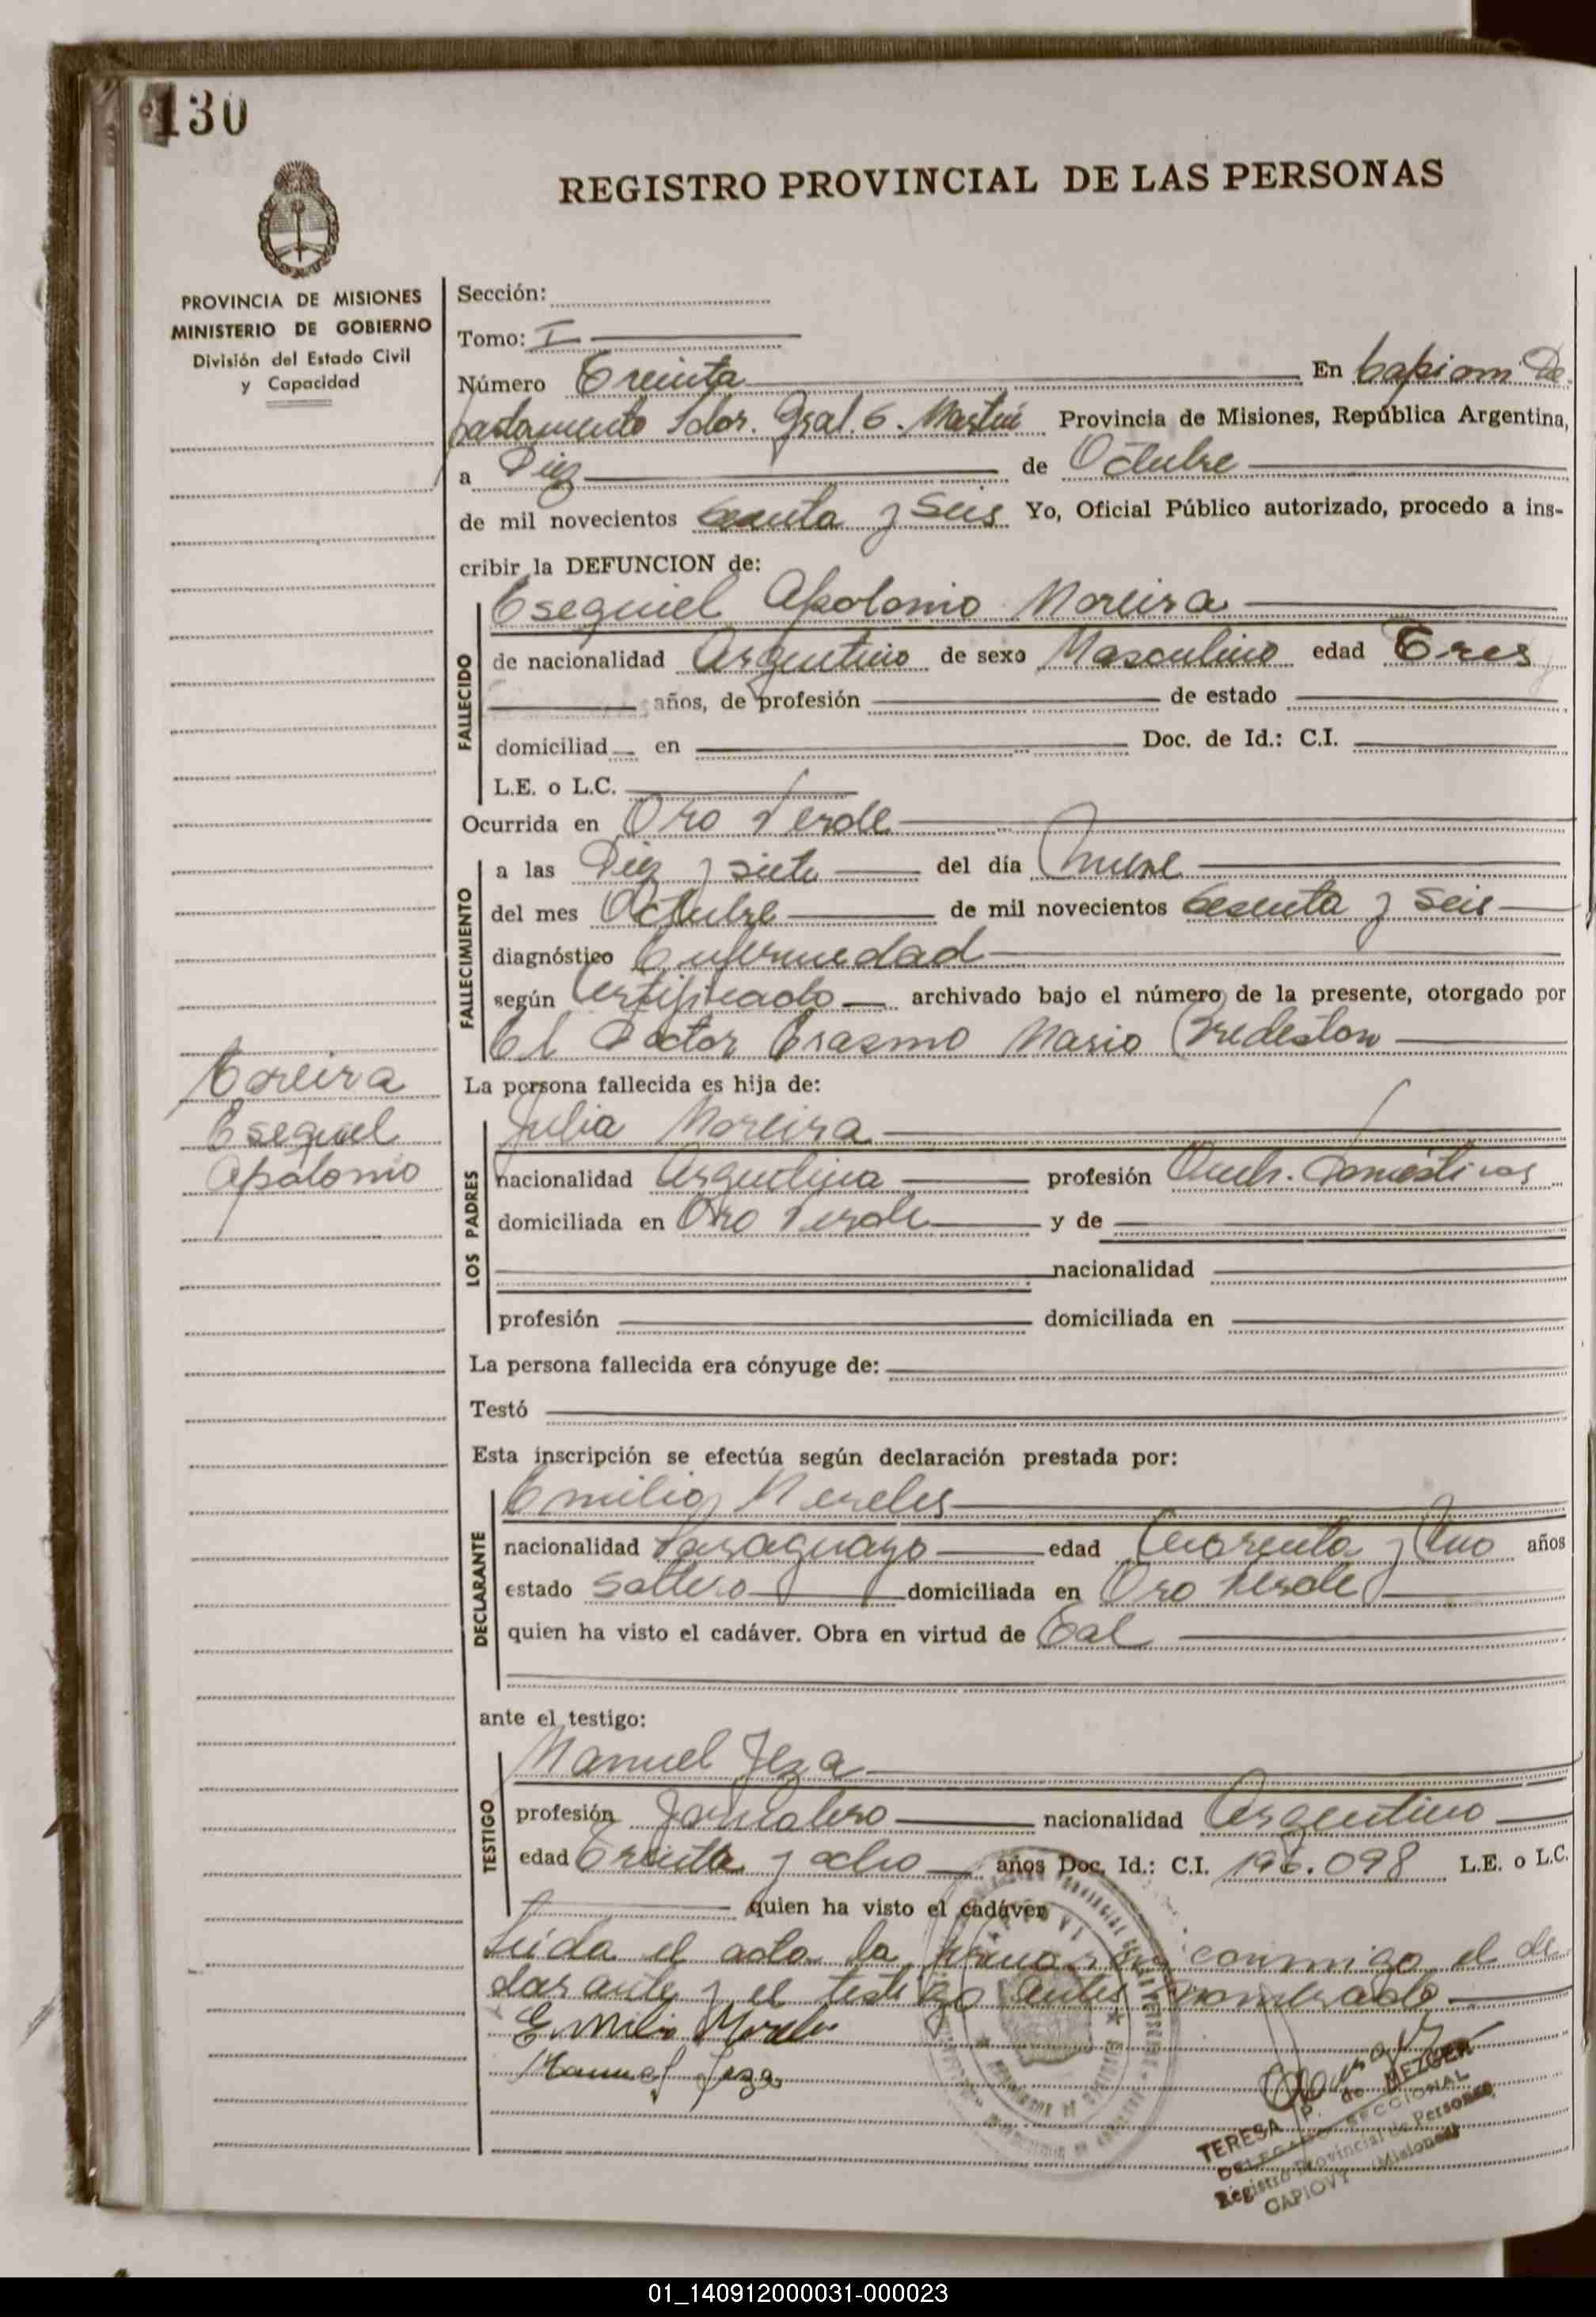 130
REGISTRO PROVINCIAL DE LAS PERSONAS
PROVINCIA DE MISIONES
MINISTERIO DE GOBIERNO
División del Estado Civil
y Capacidad
Sección:
Tomo: I
Número Treinta En Capiovi De
partamento Ldor. Gral. S. Martín Provincia de Misiones, República Argentina,
a Diez de Octubre
de mil novecientos sesenta y Seis Yo, Oficial Público autorizado, procedo a ins-
cribir la DEFUNCION de:
FALLECIDO
Esequiel Apolonio Moreira
de nacionalidad Argentino de sexo Masculino edad Tres
años, de profesión de estado
domiciliad en Doc. de Id.: C.I.
L.E. o L.C.
Ocurrida en Oro Verde
FALLECIMIENTO
a las Diez y siete del día Nueve
del mes Octubre de mil novecientos Sesenta y Seis
diagnóstico Enfermedad
según Certificado archivado bajo el número de la presente, otorgado por
El Doctor Erasmo Mario
Moreira
Esequiel
Apolonio
La persona fallecida es hija de:
LOS PADRES
Julia Moreira
nacionalidad Argentina profesión Queh. Domésticos
domiciliada en Oro Verde y de
nacionalidad
profesión domiciliada en
La persona fallecida era cónyuge de:
Testó
Esta inscripción se efectúa según declaración prestada por:
DECLARANTE
Emilio Mereles
nacionalidad Paraguayo edad Cuarenta y Uno años
estado Soltero domiciliada en Oro Verde
quien ha visto el cadáver. Obra en virtud de Tal
ante el testigo:
TESTIGO
Manuel Jeza
profesión Jornalero nacionalidad Argentino
edad Treinta y ocho años Doc. Id.: C.I. 196.098 L.E. o L.C.
quien ha visto el cadáver
Leida el acta la firmaron conmigo el de
clarante y el testigo antes nombrado
Emilio Mereles
Manuel Jeza
TERESA P. de MEZGER
DELEGADO SECCIONAL
Registro Provincial de Personas
CAPIOVY (Misiones)
01_140912000031-000023